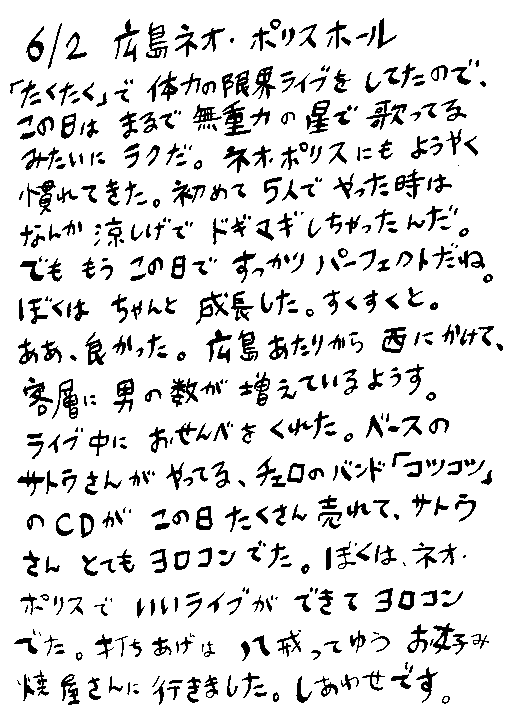 6/2 広島ネオ・ポリスホール
「たくたく」で 体力の限界ライブを してたので、
この日は まるで 無重力の 星で 歌ってる
みたいに ラクだ。 ネオ・ポリスにも ようやく
慣れてきた。初めて 5人で やった時は
なんか 涼しげで ドギマギしちゃったんだ。
でも もう この日で すっかり パーフェクトだね。
ぼくは ちゃんと 成長した。すくすくと。
ああ、良かった。 広島あたりから 西にかけて、
客層に 男の数が 増えているようす。
ライブ中に おせんべを くれた。ベースの
サトウさんが やってる、チェロのバンド「コツコツ」
のCDが この日 たくさん 売れて、サトウ
さん とても ヨロコンでた。ぼくは、ネオ・
ポリスで いいライブが できて ヨロコン
でた。打ちあげは 八戒ってゆう お好み
焼屋さんに 行きました。しあわせです。